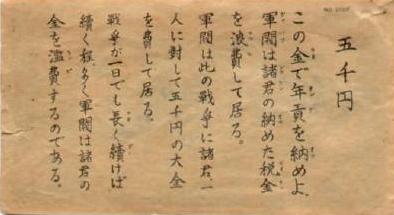 五千円
この金で年貢を納めよ、
軍閥は諸君の納めた税金
を浪費して居る。
軍閥は此の戦争に諸君一
人に対して五千円の大金
を費して居る。
戦爭が一日でも長く續けば
續く程、多く軍閥は諸君の
金を濫費するのである。